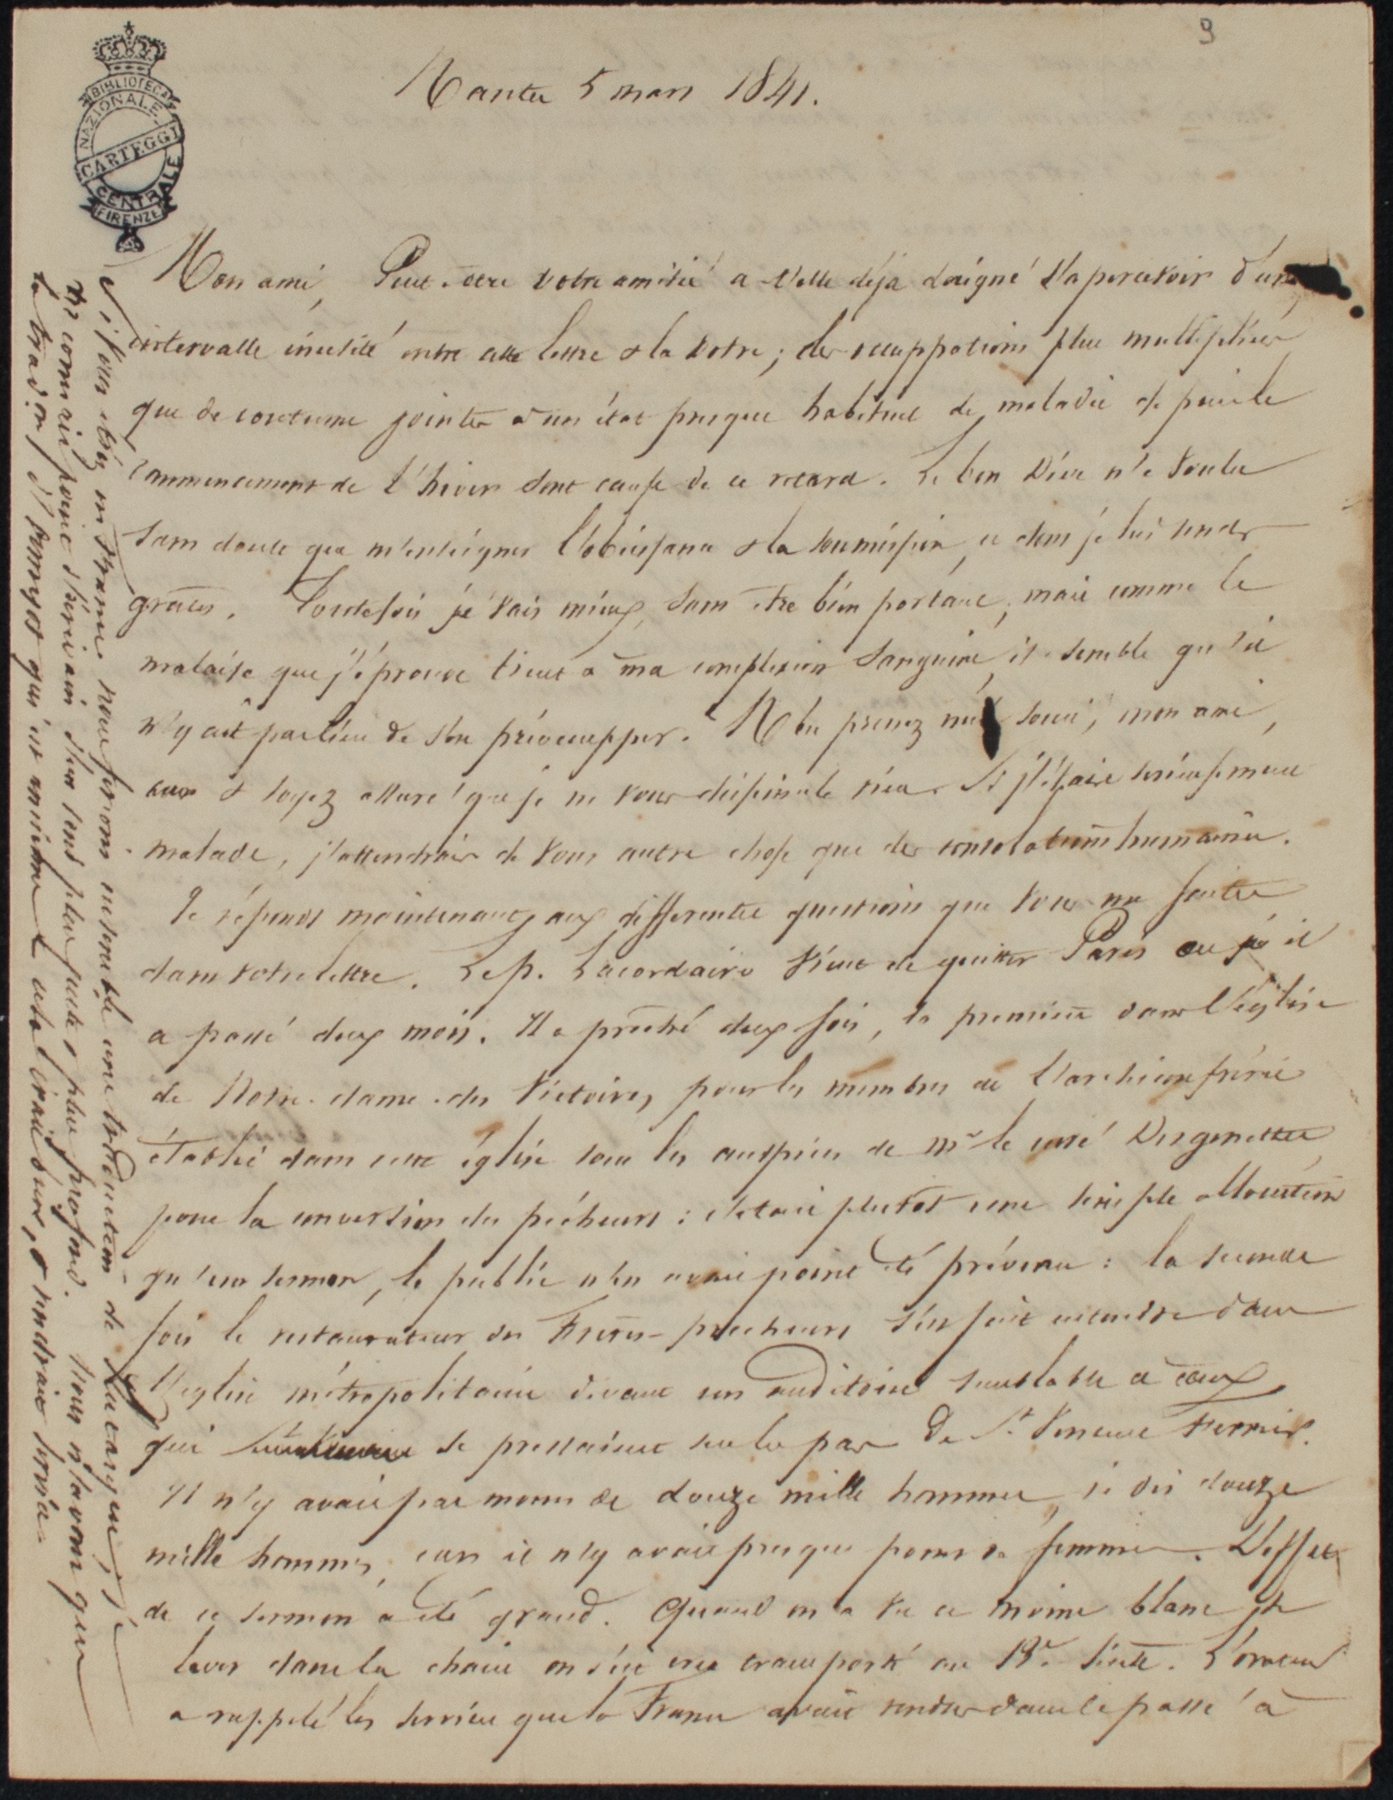 9
BIBLIOTECA
NAZIONALE
CARTEGGI
CENTRALE
FIRENZE
Nantes 5 mars 1841.
Mon ami, Peut-etre votre amitié a-t'elle déja daigné s'apercevoir d'un
intervalle inusité entre cette lettre & la votre; des occuppations plus multipliées
que de coutume jointes a un état presque habituel de maladie depuis le
commencement de l'hiver sont cause de ce retard. Le bon Dieu n'a voulu
sans doute que m'enseigner l'obéissance & la soumission, ce dont je lui rends
graces. Toutefois je vais mieux, sans etre bien portant, mais comme le
malaise que j'éprouve tient a ma complexion sanguine, il semble qu'il
n'y ait pas lieu de s'en préoccupper. N'en prenez nul souci, mon ami,
& soyez assuré que je ne vous dissimule rien. Si j'étais serieusement
malade, j'attendrais de vous autre chose que des consolations humaines.
Je réponds maintenant aux differentes questions que vous me faites
dans votre lettre. Le p. Lacordaire vient de quitter Paris ou il
a passé deux mois. Il a prêché deux fois, la premiere dans l'église
de Notre-dame-des Victoires, pour les membres de l'archiconfrérie
établie dans cette église sous les auspices de Mr le curé Desgenettes
pour la conversion des pécheurs: c'etait plutot une simple allocution
qu'un sermon, le public n'en avait point été prévenu: la seconde
fois le restaurateur des Freres-precheurs s'est fait entendre dans
l'église métropolitaine devant un auditoire semblable a ceux
qui se pressaient sur les pas de St Vincent Ferrier.
Il n'y avait pas moins de douze mille hommes, je dis douze
mille hommes, car il n'y avait presque point de femmes. L'effet
de ce sermon a été grand. Quand on a vu ce moine blanc se
lever dans la chaire on s'est cru transporté au 13e siecle. L'orateur
a rappelé les services que la France avait rendus dans le passé a
Si vous étiez en France nous ferions ensemble une traduction de Plutarque, je
ne connais point d'écrivain d'un sens plus juste & plus profond. Nous n'avons que
la traduction d'Amyot qui est ancienne & cela irait bien, & rendrait service.